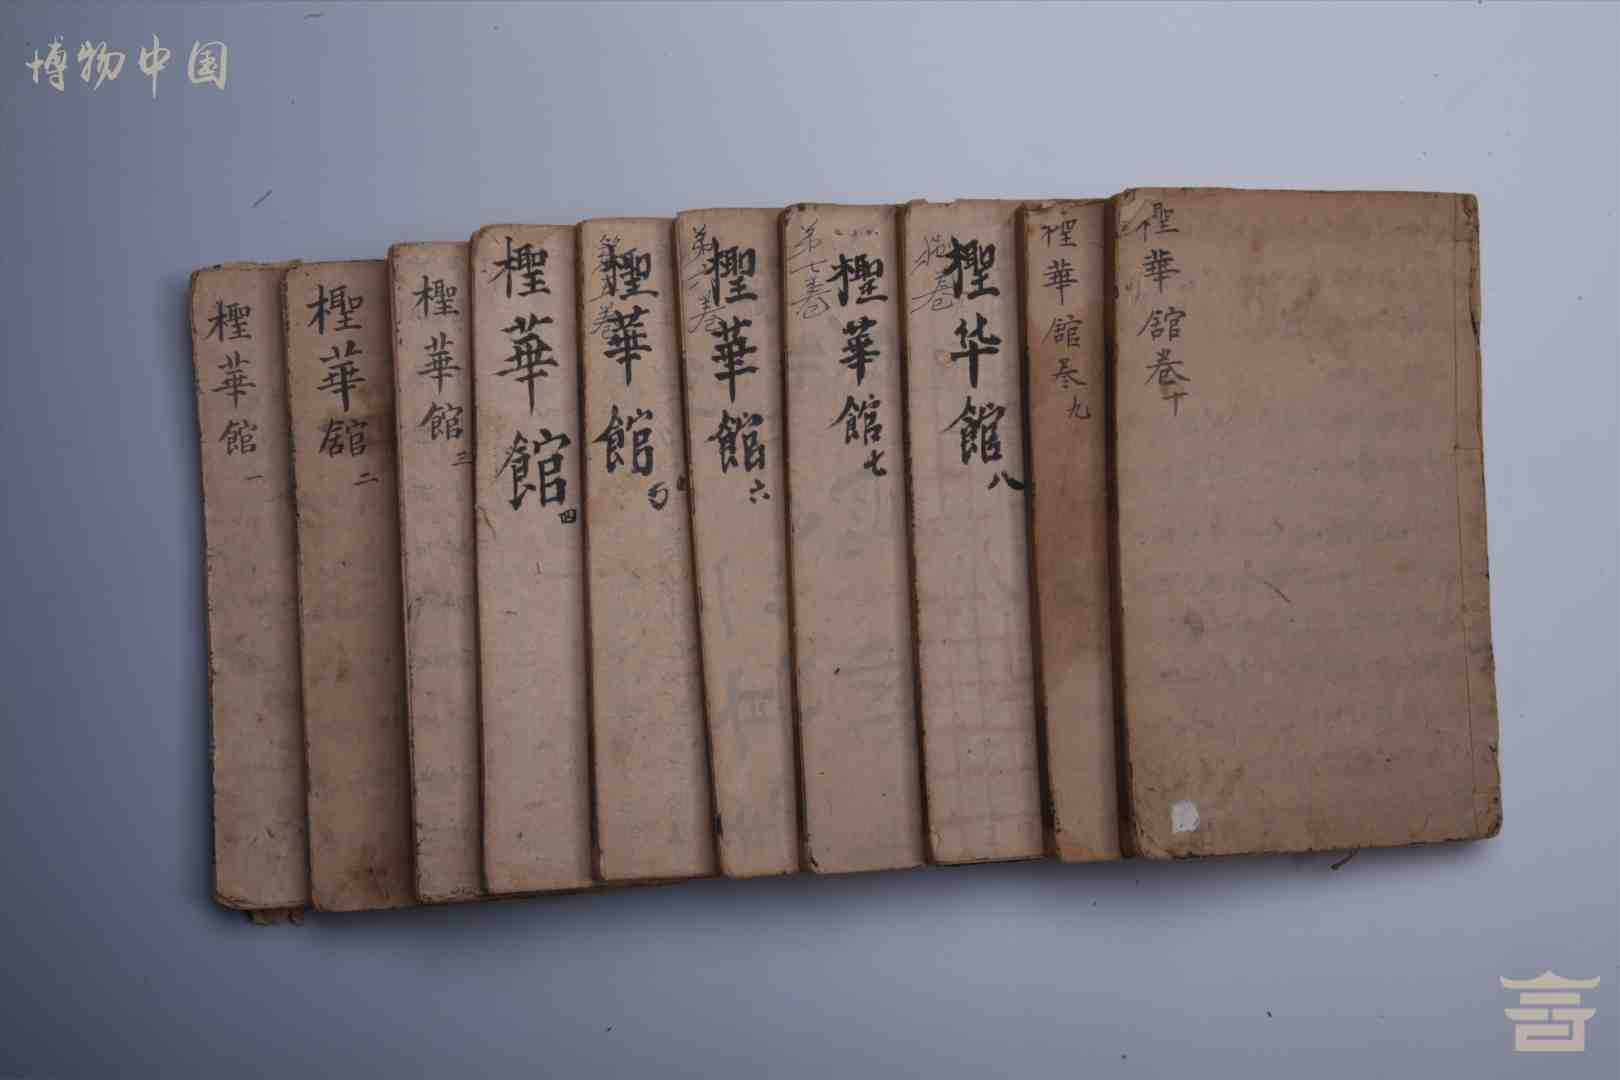 博物中国
檉華館一
檉華館二
檉華館三
檉華館四
檉華館五
檉華館六
第七卷
檉華館七
檉华館八
檉華舘卷九
檉華舘卷十